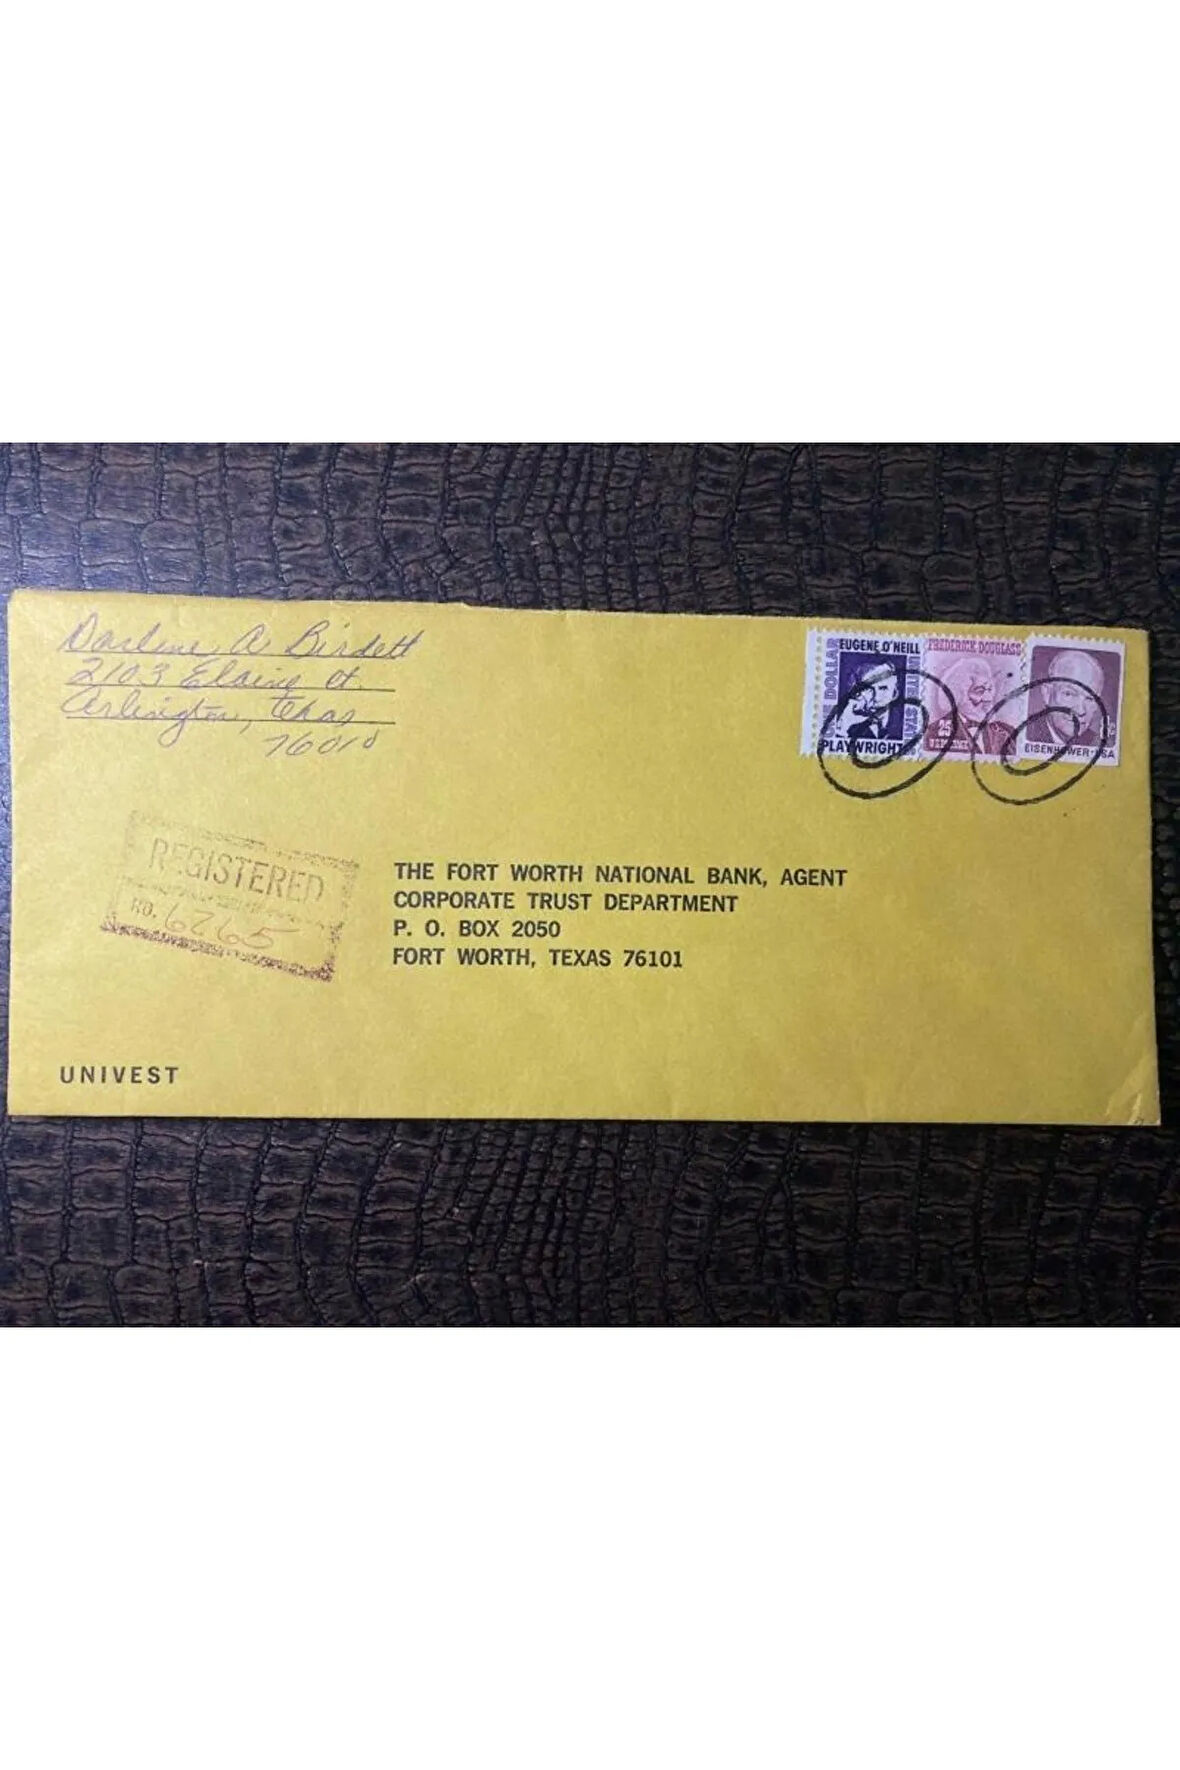 Darlene A Birdett
2103 Elaine ct.
Arlington, Texas
76010
EUGENE O'NEILL
DOLLAR
UNITED STATES
PLAYWRIGHT
FREDERICK DOUGLASS
25¢
EISENHOWER·USA
REGISTERED
NO. 6265
THE FORT WORTH NATIONAL BANK, AGENT
CORPORATE TRUST DEPARTMENT
P. O. BOX 2050
FORT WORTH, TEXAS 76101
UNIVEST